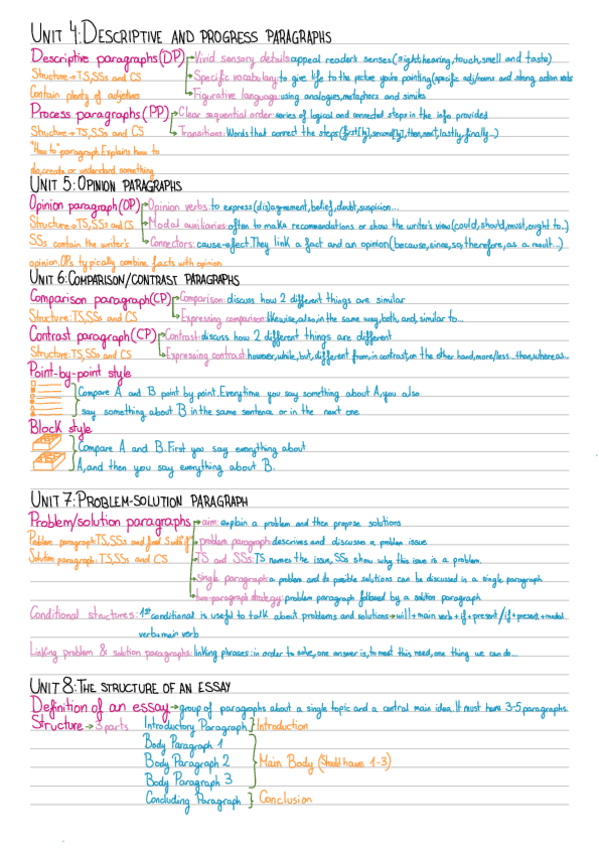 UNIT 4: DESCRIPTIVE AND PROGRESS PARAGRAPHS
Descriptive paragraphs (DP) → Vivid sensory details: appeal reader's senses (sight, hearing, touch, smell and taste)
Structure → TS, SSs and CS → Specific vocabulary: to give life to the picture you're painting (specific adj/nouns and strong action verbs
Contain plenty of adjectives → Figurative language: using analogies, metaphors and similes
Process paragraphs (PP) → Clear sequential order: series of logical and connected steps in the info provided
Structure → TS, SSs and CS → Transitions: Words that connect the steps (first[ly], second[ly], then, next, lastly, finally...)
"How to" paragraph. Explains how to
do, create or understand something
UNIT 5: OPINION PARAGRAPHS
Opinion paragraph (OP) → Opinion verbs: to express (dis)agreement, belief, doubt, suspicion...
Structure → TS, SSs and CS → Modal auxiliaries: often to make recommendations or show the writer's view (could, should, must, ought to...)
SSs contain the writer's → Connectors: cause → efect. They link a fact and an opinion (because, since, so, therefore, as a result...)
opinion. OPs typically combine facts with opinion
UNIT 6: COMPARISON/CONTRAST PARAGRAPHS
Comparison paragraph (CP) → Comparison: discuss how 2 different things are similar
Structure: TS, SSs and CS → Expressing comparison: likewise, also, in the same way, both, and, similar to...
Contrast paragraph (CP) → Contrast: discuss how 2 different things are different
Structure: TS, SSs and CS → Expressing contrast: however, while, but, different from, in contrast, on the other hand, more/less...than, whereas...
Point-by-point style
Compare A and B point by point. Everytime you say something about A, you also
say something about B in the same sentence or in the next one
Block style
Compare A and B. First you say everything about
A, and then you say everything about B.
UNIT 7: PROBLEM-SOLUTION PARAGRAPH
Problem/solution paragraphs → aim: explain a problem and then propose solutions
Problem paragraph: TS, SSs and final S with → problem paragraph: descrives and discusses a problem issue
Solution paragraph: TS, SSs and CS → TS and SSs: TS names the issue, SSs show why this issue is a problem.
→ single paragraph: a problem and its possible solutions can be discussed in a single paragraph
→ two-paragraph strategy: problem paragraph followed by a solution paragraph
Conditional structures: 1st conditional is useful to talk about problems and solutions → will + main verb + if + present / if + present + modal
verb + main verb
Linking problem & solution paragraphs: linking phrases: in order to solve, one answer is, to meet this need, one thing we can do...
UNIT 8: THE STRUCTURE OF AN ESSAY
Definition of an essay → group of paragraphs about a single topic and a central main idea. It must have 3-5 paragraphs.
Structure → 3 parts Introductory Paragraph } Introduction
Body Paragraph 1
Body Paragraph 2 } Main Body (Should have 1-3)
Body Paragraph 3
Concluding Paragraph } Conclusion